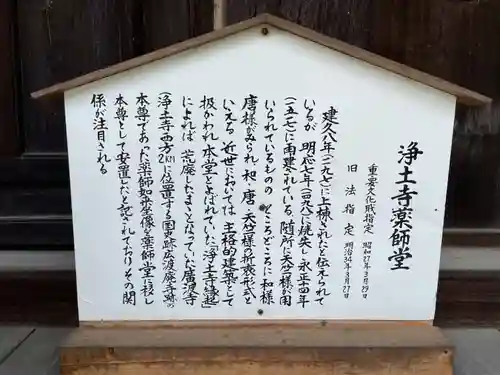 浄土寺薬師堂
重要文化財指定 昭和27年3月29日
旧法指定 明治34年3月27日
建久八年(一一九七)に上棟されたと伝えられて
いるが 明応七年(一四九八)に焼失し永正十四年
(一五一七)に再建されている。随所に天竺様が用
いられているものの ところどころに和様
唐様がみられ、和・唐・天竺様の折衷形式と
いえる 近世においては 主格的建築として
扱かわれ 本堂とよばれていた「浄土寺縁起」
によれば 荒廃したままとなっていた廣渡寺
(浄土寺西方2kmに位置する国史跡広渡廃寺跡)の
本尊であった薬師如来像を薬師堂に移し
本尊として安置したと記されており その関
係が注目される